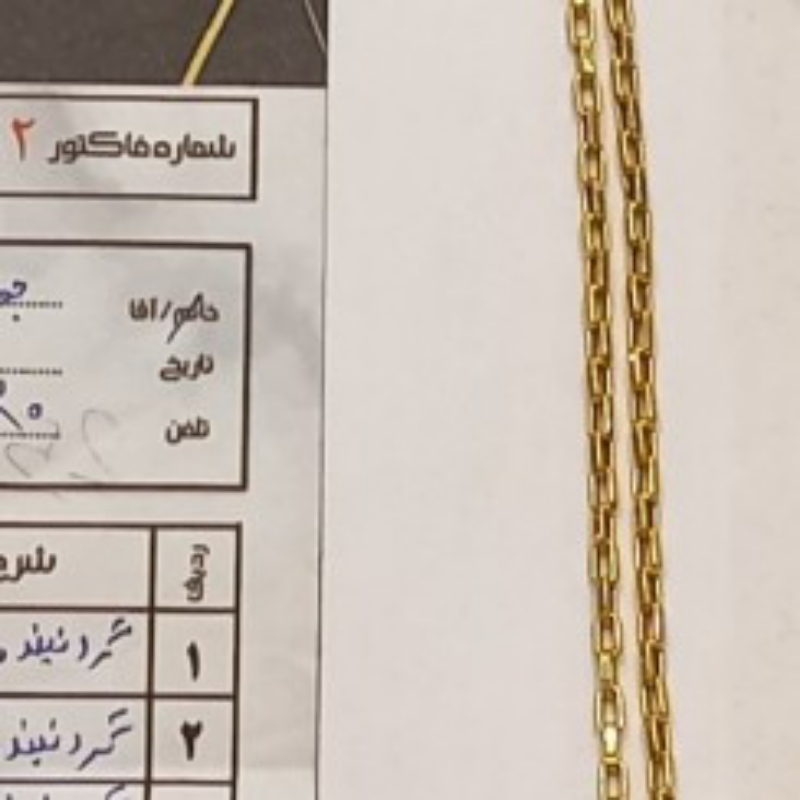 شماره فاکتور ۲
خانم/آقا
تاریخ
تلفن
ردیف شرح
۱ گردنبند
۲ گردنبند